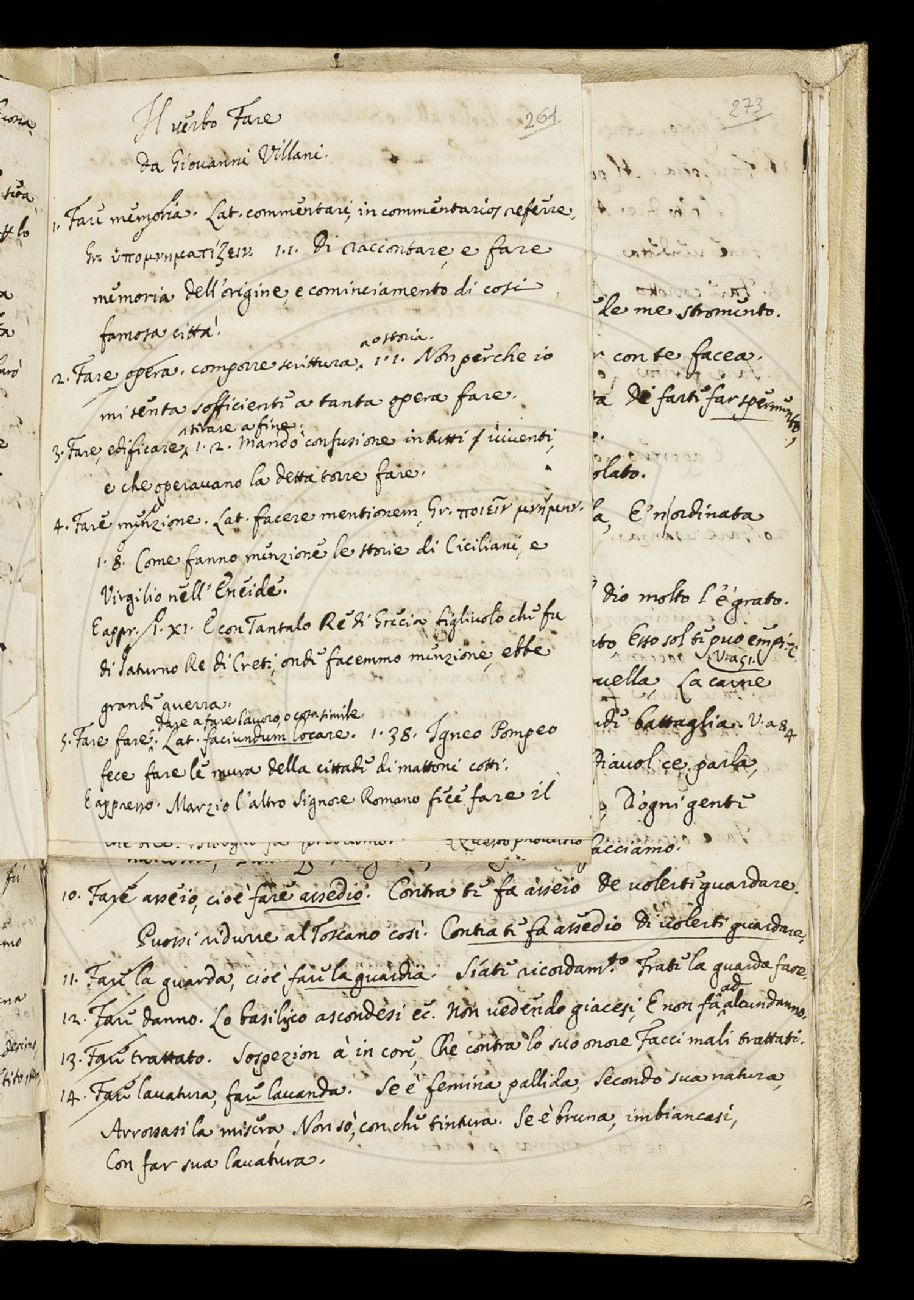 Il verbo Fare
261
da Giovanni Villani.
1. Fare memoria. Lat. commentari, in commentarios referre,
Gr. ὑπομνηματίζειν 1.1. Di raccontare, e fare
memoria dell'origine, e cominciamento di cosi
famosa città.
2. Fare opera. comporre scrittura, o storia. 1.1. Non perche io
mi senta sofficiente a tanta opera fare.
3. Fare, edificare, tirare a fine. 1.2. Mandò confusione in tutti i viventi,
e che operavano la detta torre fare.
4. Fare menzione. Lat. facere mentionem, Gr. ποιεῖν μνήμην.
1.8. Come fanno menzione le storie di Ciciliani, e
Virgilio nell'Eneide.
E appr. 1.XI. E con Tantalo Re di Grecia figliuolo che fu
di Saturno Re di Creti, onde facemmo menzione, ebbe
grande guerra.
5. Fare fare, dare a fare lavoro, o cosa simile. Lat. faciundum locare. 1.38. Igneo Pompeo
fece fare le mura della cittade di mattoni cotti.
E appresso. Marzio l'altro Signore Romano fece fare il
273
le me stromento.
con te facea.
di farti far sperimento,
olato.
la, E' n'ordinata
dio molto l'è grato.
Esso sol ti può empir
V. a 51.
uella, La carne
battaglia. V. a 84
Diavol ce parla,
D'ogni gente
facciamo.
10. Fare asseio, cioè fare assedio. Contra te fa asseio De volerti guardare.
Puossi ridurre al Toscano così. Contra te fa assedio di volerti guardare,
11. Fare la guarda, cioè fare la guardia. Siati ricordam.to Frate la guarda fare
12. Fare danno. Lo basilico ascondesi ec. Non vedendo giacesi, E non fa ad alcun danno.
13. Fare trattato. Sospezion à in core, Che contra lo suo onore Facci mali trattati.
14. Fare lavatura, fare lavanda. Se è femina pallida, Secondo sua natura,
Arrossasi la misera, Non sò, con che tintura. Se è bruna, imbiancasi,
Con far sua lavatura.